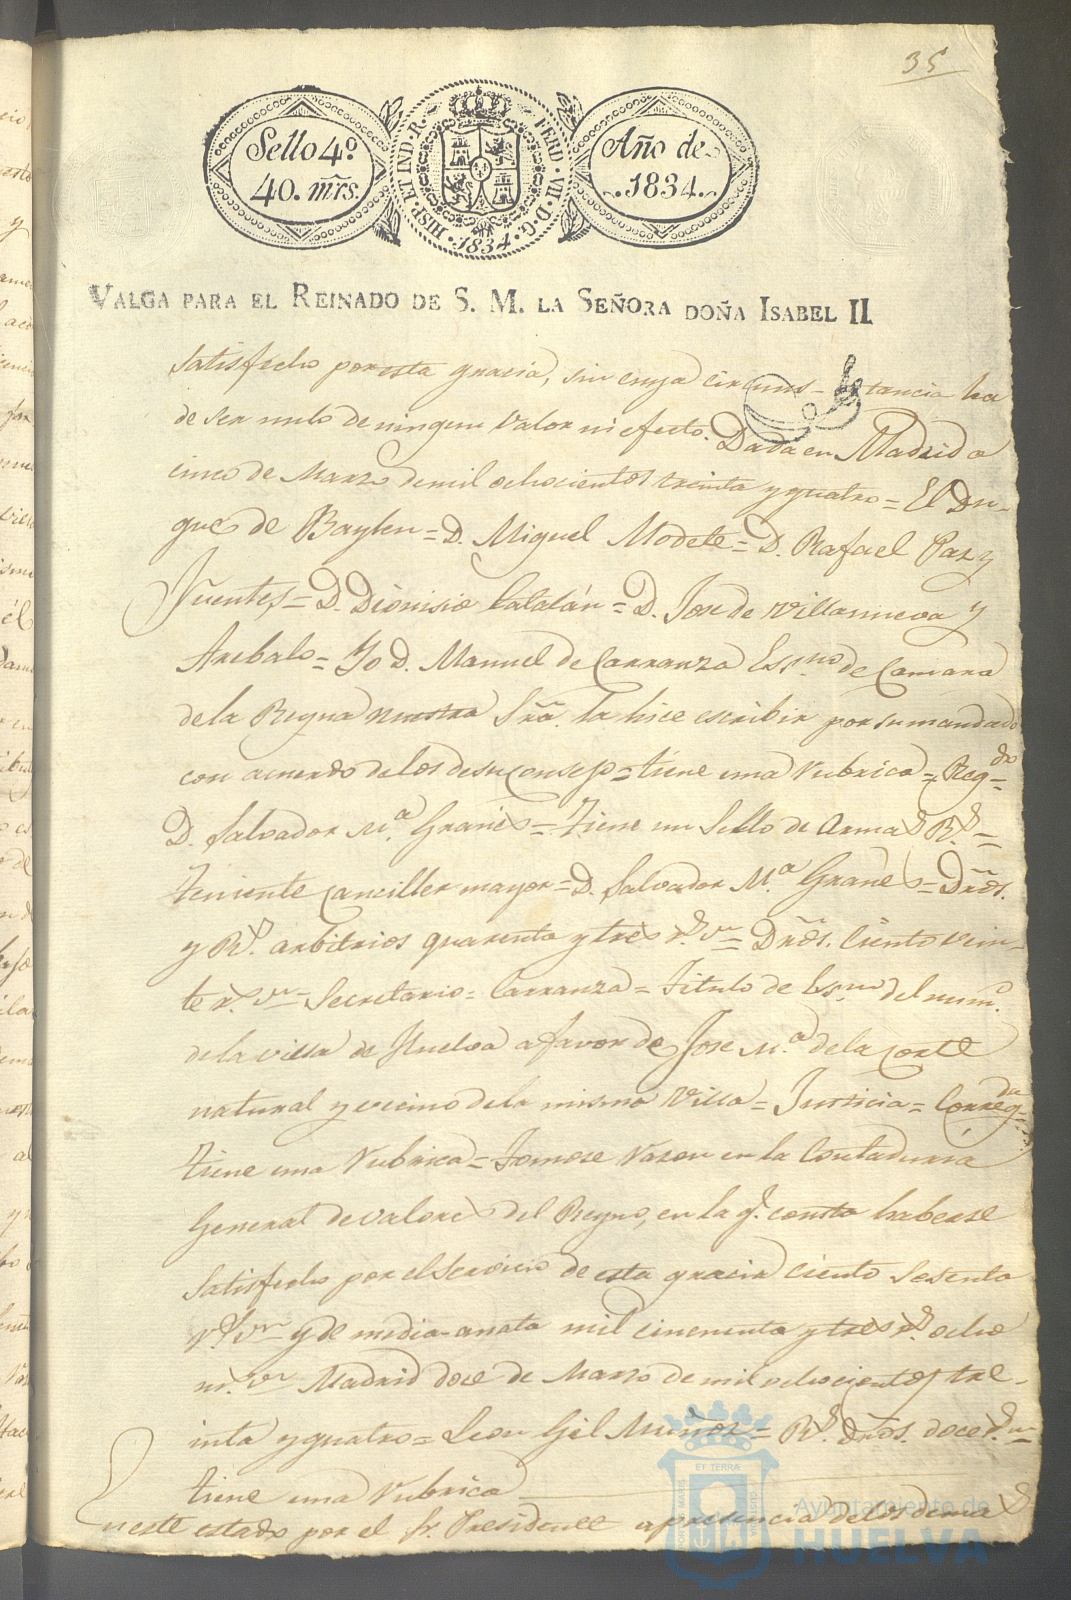 35
Sello 4º
40. mrs.
HISP. ET IND. R.
FERD. VII. D. G.
1834
Año de
1834.
VALGA PARA EL REINADO DE S. M. LA SEÑORA DOÑA ISABEL II
satisfecho por esta gracia, sin cuya circuns-tancia ha
de ser nulo de ningun valor ni efecto. Dada en Madrid a
cinco de Marzo de mil ochocientos treinta y quatro = El Du-
que de Baylen = D. Miguel Modete = D. Rafael Paz y
Fuentes = D. Dionisio Catalán = D. Jose de Villanueva y
Arebalo = Yo D. Manuel de Carranza Es.no de Camara
de la Reyna nuestra Srã. la hice escribir por su mandado
con acuerdo de los de su consejo = tiene una rubrica = Reg.do =
D. Salvador M.a Granés = Tiene un Sello de Armas R.s =
teniente Canciller mayor = D. Salvador M.a Granés = Drõs.
y R.s arbitrios quarenta y tres r.s vn = Drõs. ciento vein-
te r.s vn = Secretario = Carranza = Titulo de Es.no del num.o
de la villa de Huelva a favor de Jose M.a de la Corte
natural y vecino de la misma Villa = Justicia = Correg.da
tiene una rubrica = Tomose razon en la Contaduria
General de valores del Reyno, en la q.e consta haberse
satisfecho por el servicio de esta gracia ciento sesenta
r.s vn y de media-anata mil cincuenta y tres r.s ocho
m.s vn Madrid doce de Marzo de mil ochocientos tre-
inta y quatro = Leon Gil Muñoz = R.s drõs. doce r.s vn =
tiene una rubrica
n este estado por el Sr. Presidente a presencia de los demas
ET TERRÆ
Ayuntamiento de
HUELVA